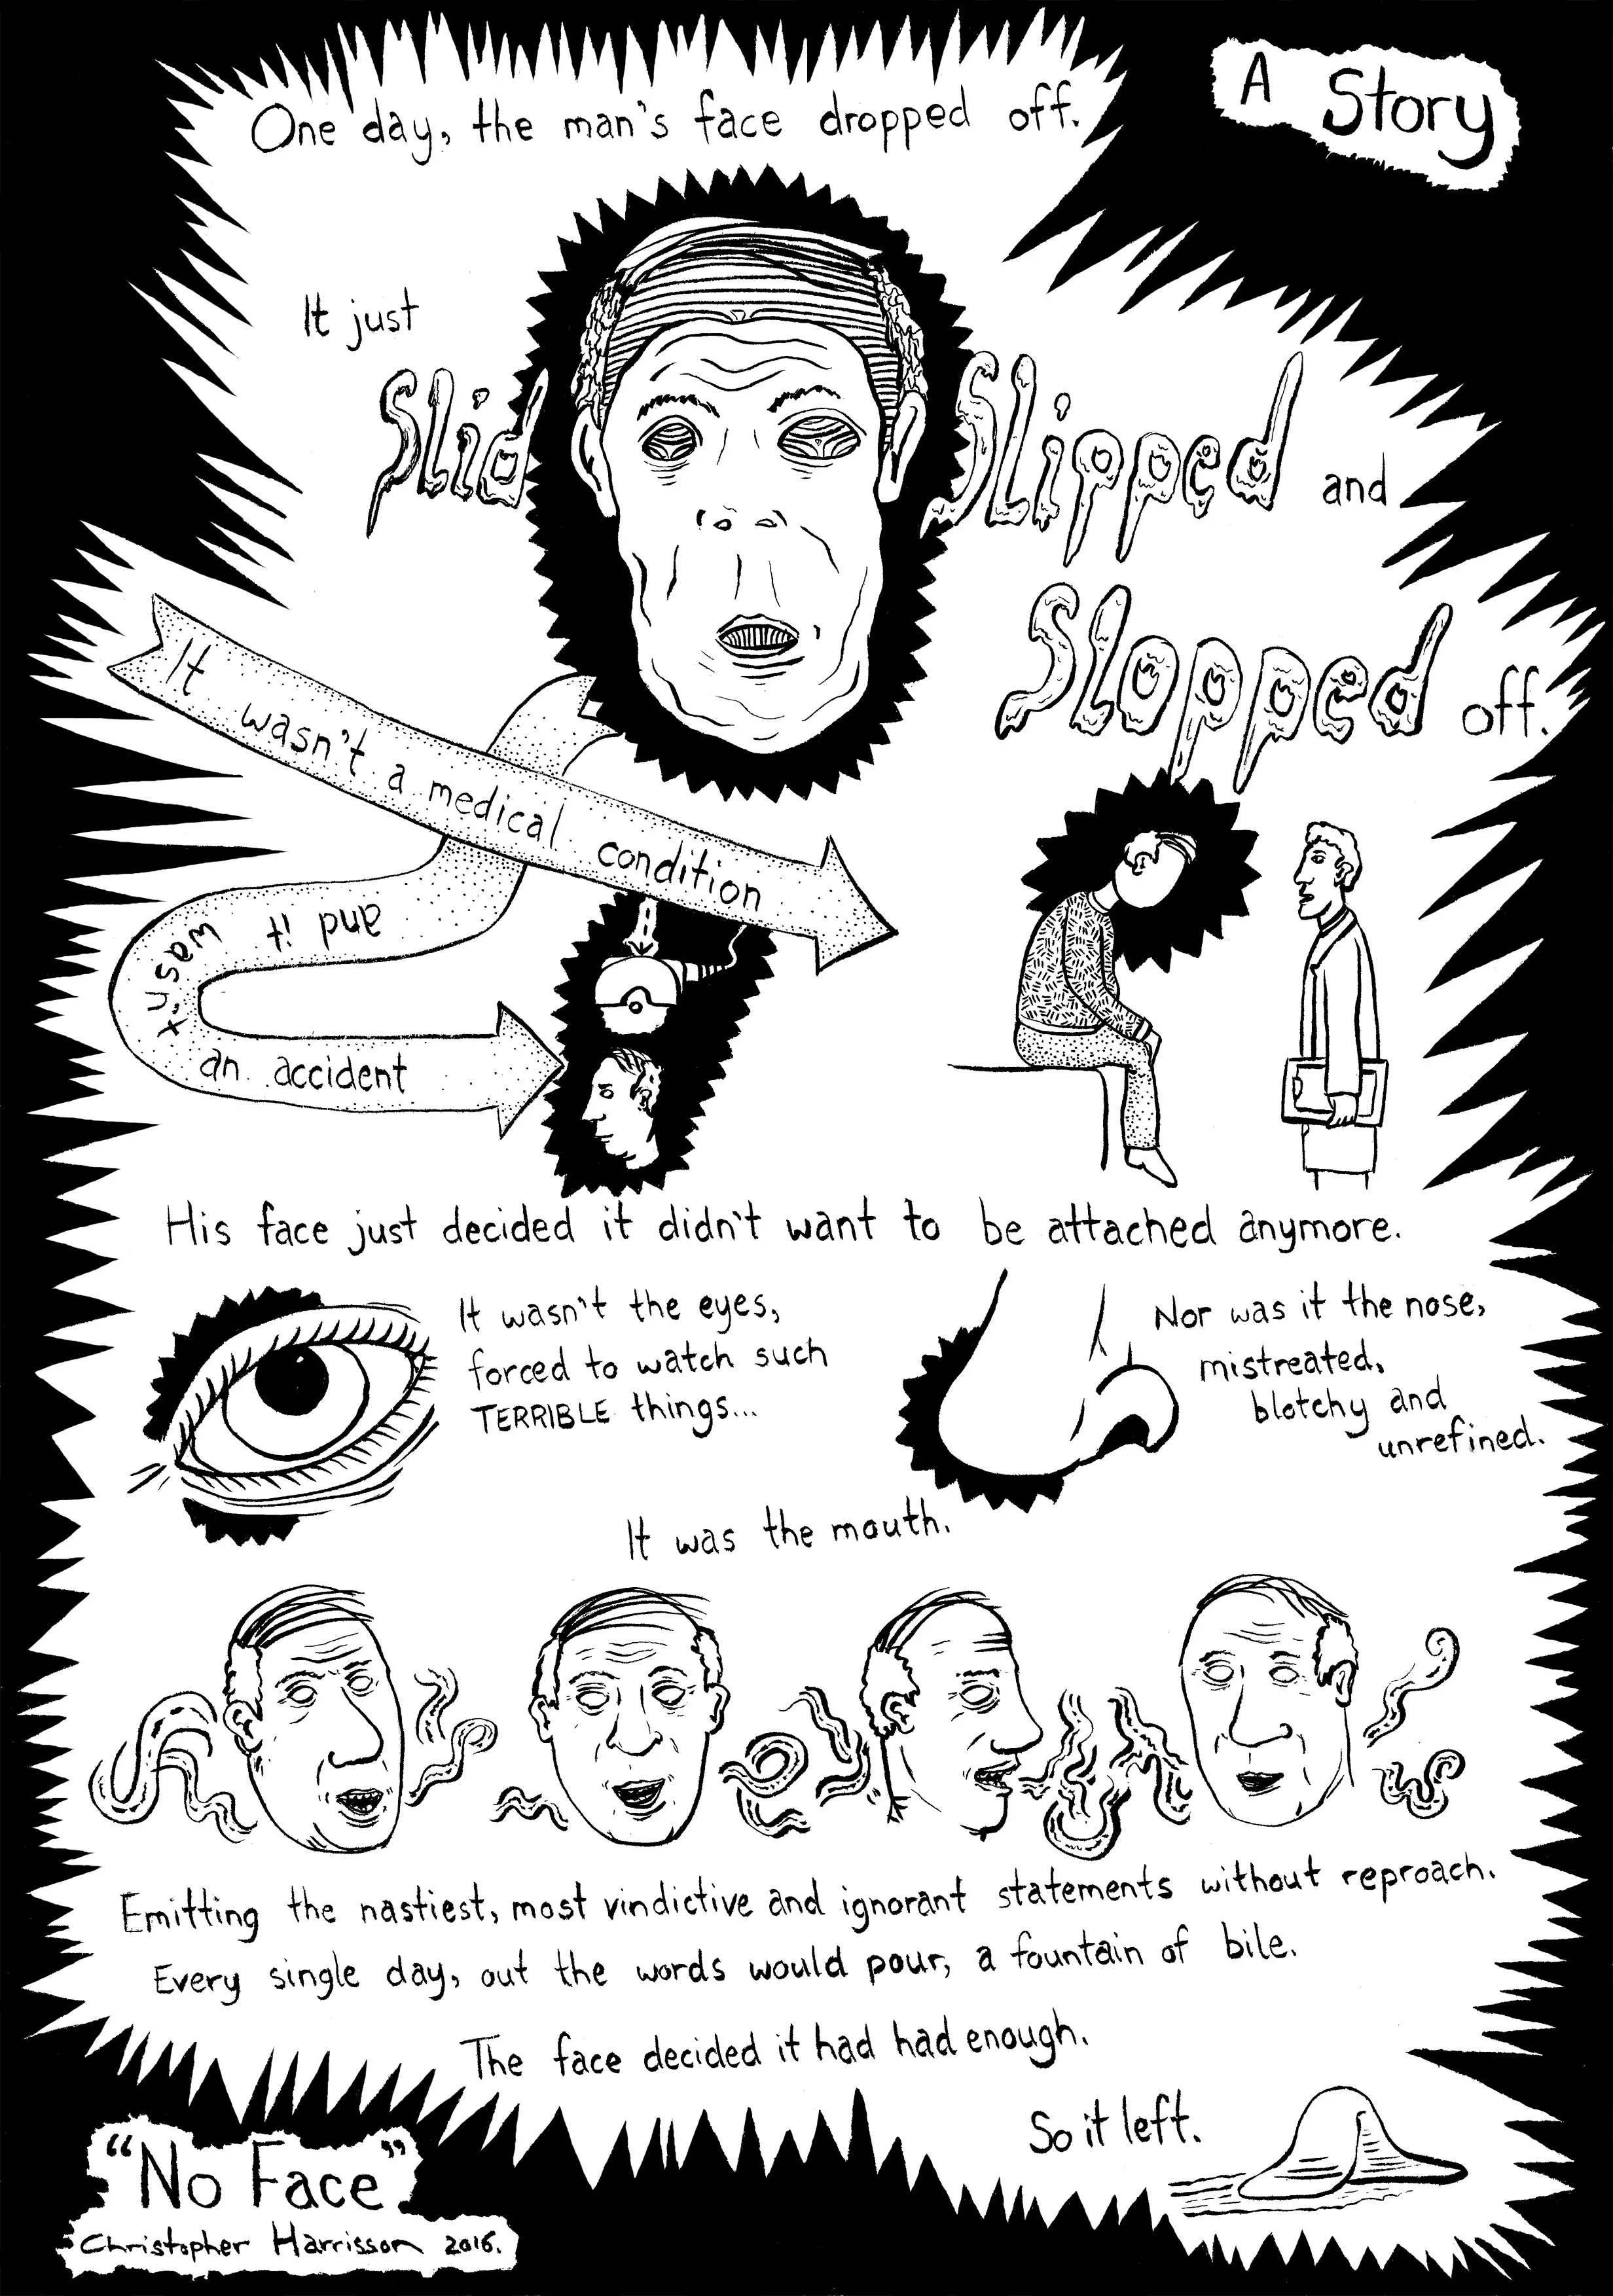 A Story
One day, the man's face dropped off.
It just
Slid
Slipped and
Slopped off.
It wasn't a medical condition
and it wasn't
an accident
His face just decided it didn't want to be attached anymore.
It wasn't the eyes,
forced to watch such
TERRIBLE things...
Nor was it the nose,
mistreated,
blotchy and
unrefined.
It was the mouth.
Emitting the nastiest, most vindictive and ignorant statements without reproach.
Every single day, out the words would pour, a fountain of bile.
The face decided it had had enough.
So it left.
"No Face"
Christopher Harrisson 2016.